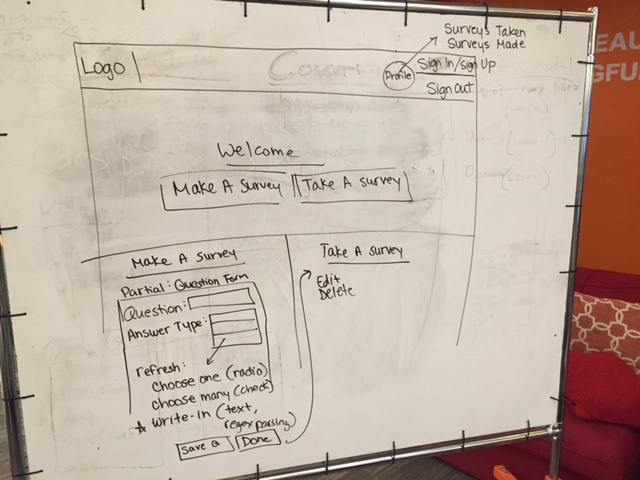 Surveys Taken
Surveys Made
Logo
Concert
Profile
Sign In/sign Up
Sign Out
Welcome
Make A survey
Take A survey
Make A survey
Partial: Question Form
Question:
Answer Type:
refresh:
choose one (radio)
choose many (check)
☆ write-in (text,
regex parsing)
Save Q
Done
Take A survey
Edit
Delete
EAU
GFU